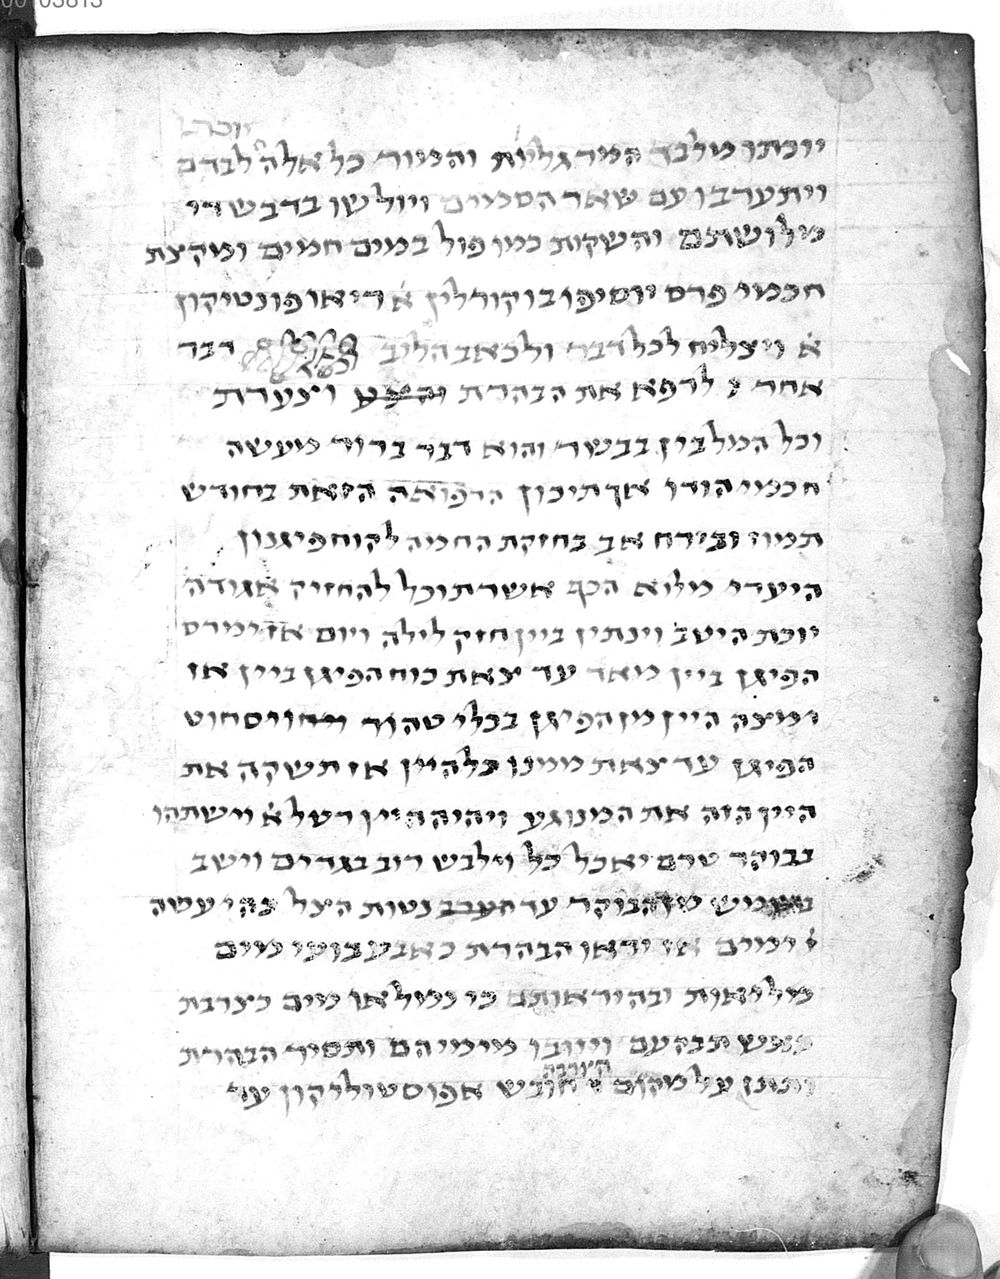 00103813
ויכתו מלבד המרגליות והמור כל אלה לבדם
ויתערבו עם שאר הסממים ויולשו בדבש די
מלושתם והשקות כמו פול במים חמים ומקצת
חכמי פרס יוסיפו בו קורלין א' דיאופונטיקון
א' ויצליח לכל דבר ולכאב הליב דבר
אחר לרפא את הבהרת וצערת
וכל המלבין בבשר והוא דבר ברור מעשה
חכמי הודו אך תיכון הרפואה הזאת בחודש
תמוז ובירח אב בחזקת החמה לקוח פיגנון
היערי מלוא הכף אשר תוכל להחזיק אגודה
יוכת היטב וינתין ביין חזק לילה ויום אז ימרס
הפיגן ביין מאד עד צאת כוח הפיגן ביין אז
ימצה היין מן הפיגן בכלי טהור ויסחוט
הפיגן עד צאת ממנו כל היין אז תשקה את
היין הזה את המנוגע ויהיה היין רטל א' וישתהו
בבוקר טרם יאכל כל וילבש רוב בגדים וישב
בשמיש מן הבוקר עד הערב נטות הצל כה יעשה
ימים אז יראו הבהרת כאבעבועי מים
מליאות ובהיראותם כי נמלאו מים כצרבת
באש תבקעם ויזובו מימיהם ותסיר הבהרת
ותתן על מקום הצרבה חובש אפוסטוליקון עד